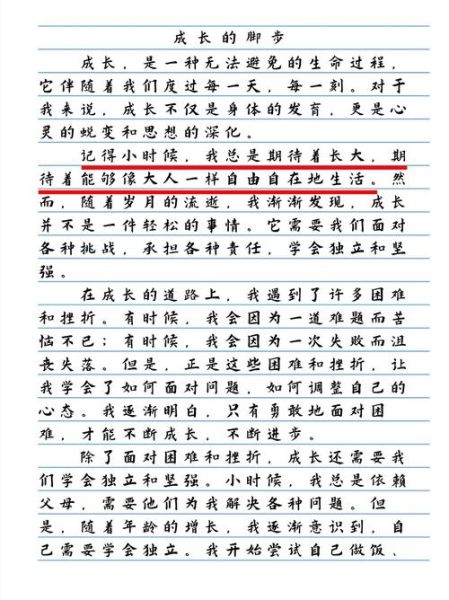 成长的脚步
成长，是一种无法避免的生命过程，
它伴随着我们度过每一天，每一刻。对于
我来说，成长不仅是身体的发育，更是心
灵的蜕变和思想的深化。
记得小时候，我总是期待着长大，期
待着能够像大人一样自由自在地生活。然
而，随着岁月的流逝，我渐渐发现，成长
并不是一件轻松的事情。它需要我们面对
各种挑战，承担各种责任，学会独立和坚
强。
在成长的道路上，我遇到了许多困难
和挫折。有时候，我会因为一道难题而苦
恼不已；有时候，我会因为一次失败而沮
丧失落。但是，正是这些困难和挫折，让
我学会了如何面对问题，如何调整自己的
心态。我逐渐明白，只有勇敢地面对困
难，才能不断成长，不断进步。
除了面对困难和挫折，成长还需要我
们学会独立和坚强。小时候，我总是依赖
父母，需要他们为我解决各种问题。但
是，随着年龄的增长，我逐渐意识到，自
己需要学会独立。我开始尝试自己做饭、